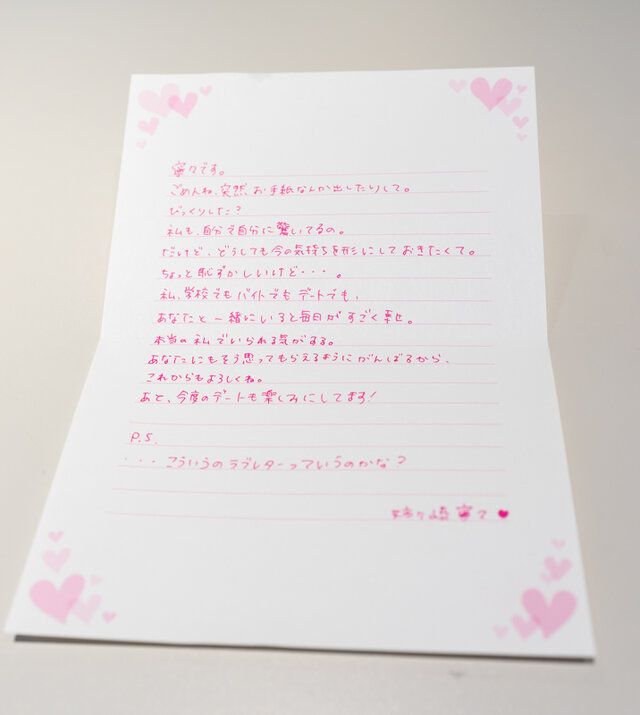 寧々です。
ごめんね、突然お手紙なんか出したりして。
びっくりした?
私も、自分で自分に驚いてるの。
だけど、どうしても今の気持ちを形にしておきたくて。
ちょっと恥ずかしいけど・・・。
私、学校でもバイトでもデートでも、
あなたと一緒にいると毎日がすごく幸せ。
本当の私でいられる気がする。
あなたにもそう思ってもらえるようにがんばるから、
これからもよろしくね。
あと、今度のデートも楽しみにしてます!
P.S.
・・・こういうのラブレターっていうのかな?
姉ヶ崎寧々♥